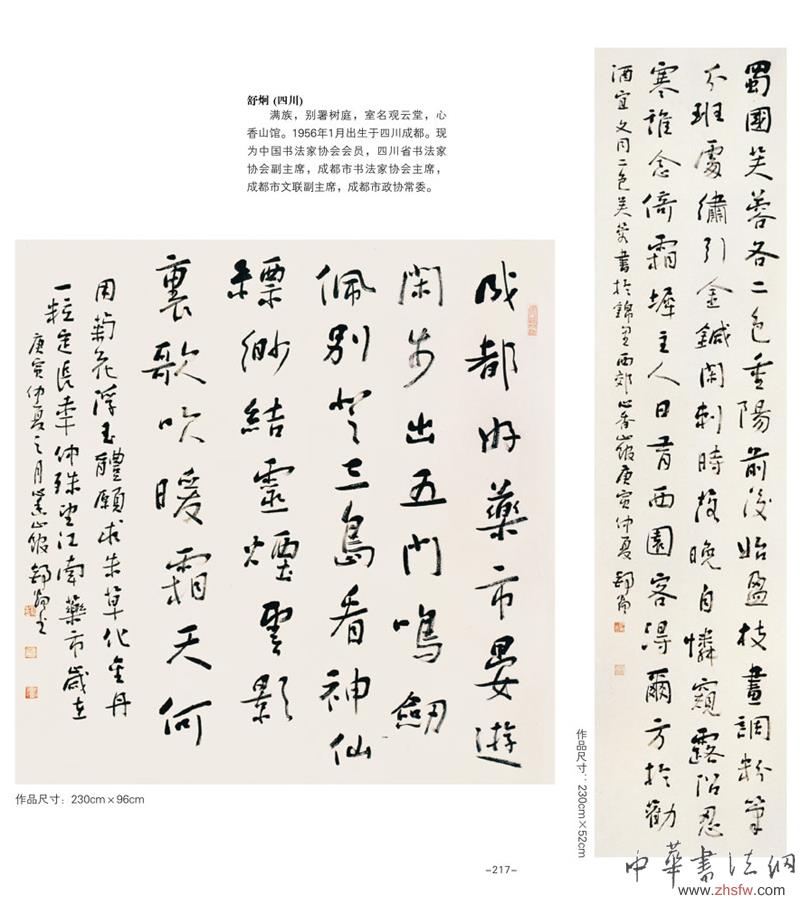 舒炯 (四川)
满族，别署树庭，室名观云堂，心
香山馆。1956年1月出生于四川成都。现
为中国书法家协会会员，四川省书法家
协会副主席，成都市书法家协会主席，
成都市文联副主席，成都市政协常委。
成都好藥市晏遊
閑步出五門鳴劒
佩別登三島看神仙
縹緲結靈煙雲影
裏歌吹暖霜天何
用菊花浮玉醴願求朱草化金丹
一粒定長年仲殊望江南藥市歲在
庚寅仲夏之月山館舒炯書
作品尺寸：230cm×96cm
蜀國芙蓉各二色重陽前後始盈枝畫調粉筆
分班處繡引金鍼閑刺時放晚自憐窺露沼忍
寒誰念倚霜墀主人日有西園客得爾方於勸
酒宜文同二色芙蓉書於錦里西郊心香山館庚寅仲夏舒炯
作品尺寸：230cm×52cm
-217-
中華書法網
www.zhsfw.com